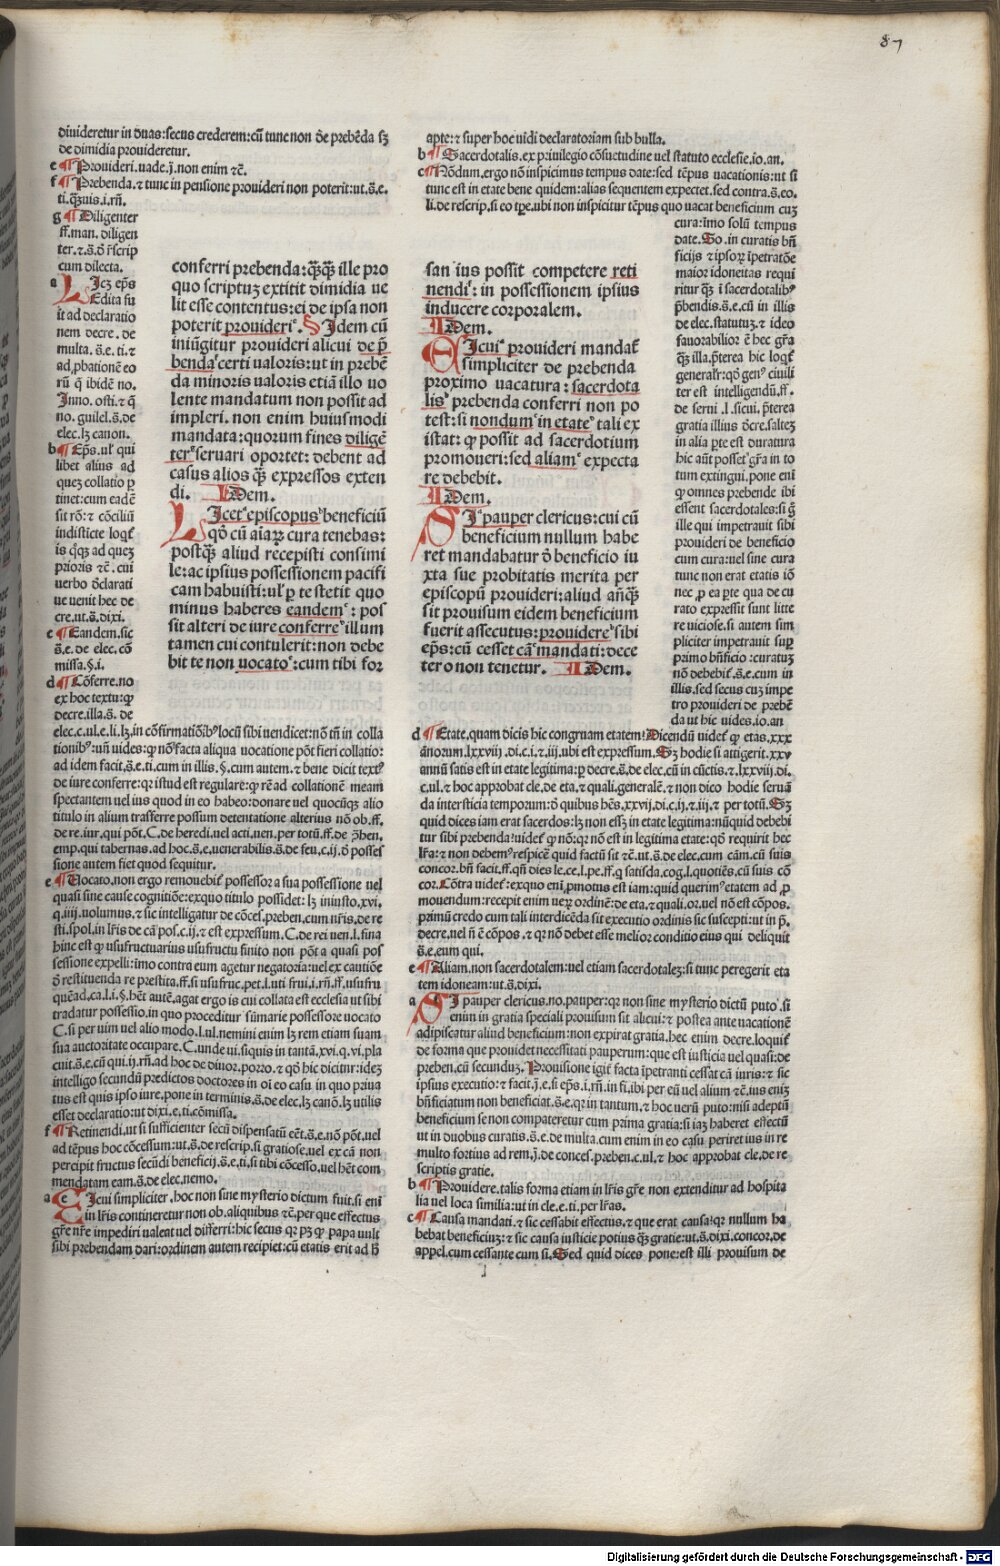 87
diuideretur in duas:secus crederem:cũ tunc non ð̃e prebẽda sʒ
de dimidia prouideretur.
e ¶ Prouideri.uade.j̃.non enim ⁊c̃.
f ¶ Prebenda.⁊ tunc in pensione prouideri non poterit:ut.s̃.e.
ti.q̃zuis.i.rñ.
g ¶ Diligenter
ff.man.diligen
ter.⁊.s̃.ð r̃scrip
cum dilecta.
a Licʒ ep̃s
Edita fu
it ad declaratio
nem decre.de
multa.s̃.e.ti.⁊
ad,pbationẽ eo
rũ q̃ ibidẽ no.
Inno.osti.⁊ q̃
no.guilel.s̃.de
elec.lʒ canon.
b ¶ Ep̃s.ul' qui
libet alius ad
quez collatio p
tinet:cum eadẽ
sit rõ:⁊ cõciliũ
indisticte loqt̃
is q̃qʒ ad quez
prioris ⁊c̃.cui
uerbo ðclarati
ue uenit hec de
cre.ut.s̃.dixi.
c ¶ Eandem.sic
s̃.e.de elec.cõ
missa.§.i.
d ¶ Cõferre.no
ex hoc textu:qp
decre.illa.s̃.de
conferri prebenda:q̃q̃ʒ ille pro
quo scriptuʒ extitit dimidia ue
lit esse contentus:ei de ipsa non
poterit prouideri. § Idem cũ
iniũgitur prouideri alicui de p̃
benda certi ualoris:ut in prebẽ
da minoris ualoris etiã illo uo
lente mandatum non possit ad
impleri. non enim huiusmodi
mandata:quorum fines diligẽ
ter seruari oportet: debent ad
casus alios q̃ʒ expressos exten
di. Idem.
Licet episcopus beneficiũ
qð cũ aĩaʒ cura tenebas:
postq̃ʒ aliud recepisti consimi
le:ac ipsius possessionem pacifi
cam habuisti:ul' p te stetit quo
minus haberes eandem : pos
sit alteri de iure conferre illum
tamen cui contulerit:non debe
bit te non uocato :cum tibi for
elec.c.ul.e.li.lʒ.in cõfirmatiõibʒ locũ sibi uendicet:nõ tñ in colla
tionibʒ:uñ uides:qp nõ facta aliqua uocatione põt fieri collatio:
ad idem facit.s̃.e.ti.cum in illis.§.cum autem.⁊ bene dicit textʒ
de iure conferre:qr istud est regulare:qp rẽ ad collationẽ meam
spectantem uel ius quod in eo habeo:donare uel quocũqʒ alio
titulo in alium trasferre possum detentatione alterius nõ ob.ff.
de re.iur.qui põt.C.de heredi.uel acti.uen.per totũ.ff.de ꝯhen.
emp.qui tabernas.ad hoc.s̃.e.uenerabilis.s̃.de seu.c.ij.ð posses
sione autem fiet quod sequitur.
e ¶ Uocato.non ergo remouebit̃ possessor a sua possessione uel
quasi sine cause cognitiõe:exquo titulo possidet:lʒ iniusto.xvi.
q.iiij.uolumus.⁊ sic intelligatur de cõces.preben.cum nr̃is.de re
sti.spol.in lr̃is de cã pos.c.ij.⁊ est expressum.C.de rei uen.l.fina
hinc est qp usufructuarius usufructu finito non põt a quasi pos
sessione expelli:imo contra eum agetur negatoria:uel ex cautiõe
ð restituenda re prestita.ff.si usufruc.pet.l.uti frui.i.rñ.ff.usufru
quẽad.ca.l.i.§.hẽt autẽ.agat ergo is cui collata est ecclesia ut sibi
tradatur possessio.in quo proceditur sũmarie possessore uocato
C.si per uim uel alio modo.l.ul.nemini enim lʒ rem etiam suam
sua auctoritate occupare.C.unde ui.siquis in tantã.xvi.q.vi.pla
cuit.s̃.e.cũ qui.ij.rñ.ad hoc de diuor.porro.⁊ qð hic dicitur:ideʒ
intelligo secundũ predictos doctores in oi eo casu in quo priua
tus est quis ipso iure.pone in terminis.s̃.de elec.lʒ canõ.lʒ utilis
esset declaratio:ut dixi.e.ti.cõmissa.
f ¶ Retinendi.ut si sufficienter secũ dispensatũ eẽt.s̃.e.nõ põt.uel
ad tẽpus hoc cõcessum:ut.s̃.de rescrip.si gratiose.uel ex cã non
percipit fructus secũdi beneficij.s̃.e.ti.si tibi cõcesso.uel hẽt com
mendatam eam.s̃.de elec.nemo.
a Cicui simpliciter.hoc non sine mysterio dictum fuit.si eni
in lr̃is contineretur non ob.aliquibus ⁊c̃.per que effectus
gr̃e nr̃e impediri ualent uel differri:hic secus qr pʒ qp papa uult
sibi prebendam dari:ordinem autem recipiet:cũ etatis erit ad h̃
apte:⁊ super hoc uidi declaratoriam sub bulla.
b ¶ Sacerdotalis.ex priuilegio cõsuetudine uel statuto ecclesie.io.an.
c ¶ Nõdum.ergo nõ inspicimus tempus date:sed tẽpus uacationis:ut si
tunc est in etate bene quidem:alias sequentem expectet.sed contra.s̃.eo.
li.de rescrip.si eo tpe.ubi non inspicitur tẽpus quo uacat beneficium cuʒ
cura:imo solũ tempus
date.So.in curatis bñ
ficijs ⁊ ipsoʒ ĩpetratõe
maior idoneitas requi
ritur q̃ʒ ĩ sacerdotalibʒ
p̃bendis.s̃.e.cũ in illis
de elec.statutuʒ.⁊ ideo
fauorabilior ẽ hec gr̃a
q̃ʒ illa.p̃terea hic loqt̃
generalr̃:qð gen' ciuili
ter est intelligendũ.ff.
de serui .l.sicui.p̃terea
gratia illius ð̃cre.salteʒ
in alia pte est duratura
hic aũt posset gr̃a in to
tum extingui.pone eni
qp omnes prebende ibi
essent sacerdotales:si q̃
ille qui impetrauit sibi
prouideri de beneficio
cum cura:uel sine cura
tunc non erat etatis iõ
nec p ea pte qua de cu
rato expressit sunt litte
re uiciose.si autem sim
pliciter impetrauit sup
primo bñficio :curatuʒ
nõ debebit.s̃.e.cum in
illis.sed secus cuʒ impe
tro prouideri de prebẽ
da ut hic uides.io.an
san ius possit competere reti
nendi : in possessionem ipsius
inducere corporalem.
Idem.
Cicui prouideri mandat̃
simpliciter de prebenda
proximo uacatura : sacerdota
lis prebenda conferri non po
test:si nondum in etate tali ex
istat: qp possit ad sacerdotium
promoueri:sed aliam expecta
re debebit.
Idem.
Si pauper clericus:cui cũ
beneficium nullum habe
ret mandabatur ð beneficio iu
xta sue probitatis merita per
episcopũ prouideri:aliud añq̃ʒ
sit prouisum eidem beneficium
fuerit assecutus:prouidere sibi
ep̃s:cũ cesset cã mandati:dece
tero non tenetur. Idem.
d ¶ Etate.quam dicis hic congruam etatem?Dicendũ uidet̃ qp etas.xxx
ãnorum.lxxviij.di.c.i.⁊.iij.ubi est expressum.Sʒ hodie si attigerit.xxv
annũ satis est in etate legitima:p decre.s̃.de elec.cũ in cũctis.⁊.lxxviij.di.
c.ul.⁊ hoc approbat cle.de eta.⁊ quali.generalẽ.⁊ non dico hodie serua
da intersticia temporum:ð quibus hẽs.xxvij.di.c.ij.⁊.iij.⁊ per totũ.Sʒ
quid dices iam erat sacerdos:lʒ non essʒ in etate legitima:nũquid debebi
tur sibi prebenda?uidet̃ qp nõ:qr nõ est in legitima etate:qð requirit hec
lr̃a:⁊ non debemʒ respicẽ quid factũ sit ⁊c̃.ut.s̃.de elec.cum cãm.cũ suis
concor.bñ facit.ff.qñ dies le.ce.l.pe.ff.q̃ satisda.cog.l.quotiẽs.cũ suis cõ
cor.Cõtra uidet̃:exquo eni pmotus est iam:quid querimʒ etatem ad p
mouendum:recepit enim ueʒ ordinẽ:de eta.⁊ quali.or.uel nõ est cõpos.
primũ credo cum tali interdicẽda sit executio ordinis sic suscepti:ut in p̃.
decre.uel ñ ẽ cõpos .⁊ qr nõ debet esse melior conditio eius qui deliquit
s̃.e.eum qui.
e ¶ Aliam.non sacerdotalem:uel etiam sacerdotaleʒ:si tunc peregerit eta
tem idoneam:ut.s̃.dixi.
a Si pauper clericus.no.pauper:qr non sine mysterio dictũ puto .si
enim in gratia speciali prouisum sit alicui:⁊ postea ante uacationẽ
adipiscatur aliud beneficium:non expirat gratia.hec enim decre.loquit̃
de forma que prouidet necessitati pauperum:que est iusticia uel quasi:de
preben.cũ secunduʒ.Prouisione igit̃ facta ĩpetranti cessat cã iuris:⁊ sic
ipsius executio:⁊ facit.j̃.e.si ep̃s.i.rñ.in fi.ibi per eũ uel alium ⁊c̃.ius eniʒ
bñficiatum non beneficiat.s̃.e.qr in tantum.⁊ hoc uerũ puto:nisi adeptũ
beneficium se non compateretur cum prima gratia:si iaʒ haberet effectũ
ut in duobus curatis.s̃.e.de multa.cum enim in eo casu periret ius in re
multo fortius ad rem.j̃.de conces.preben.c.ul.⁊ hoc approbat cle.de re
scriptis gratie.
b ¶ Prouidere.talis forma etiam in lr̃is gr̃e non extenditur ad hospita
lia uel loca similia:ut in cle.e.ti.per lr̃as.
c ¶ Causa mandati.⁊ sic cessabit effectus.⁊ que erat causa?qr nullum ha
bebat beneficiuʒ:⁊ sic causa iusticie potius q̃ʒ gratie:ut.s̃.dixi.concor.de
appel.cum cessante cum si.Sed quid dices pone:est illi prouisum de
Digitalisierung gefördert durch die Deutsche Forschungsgemeinschaft - DFG